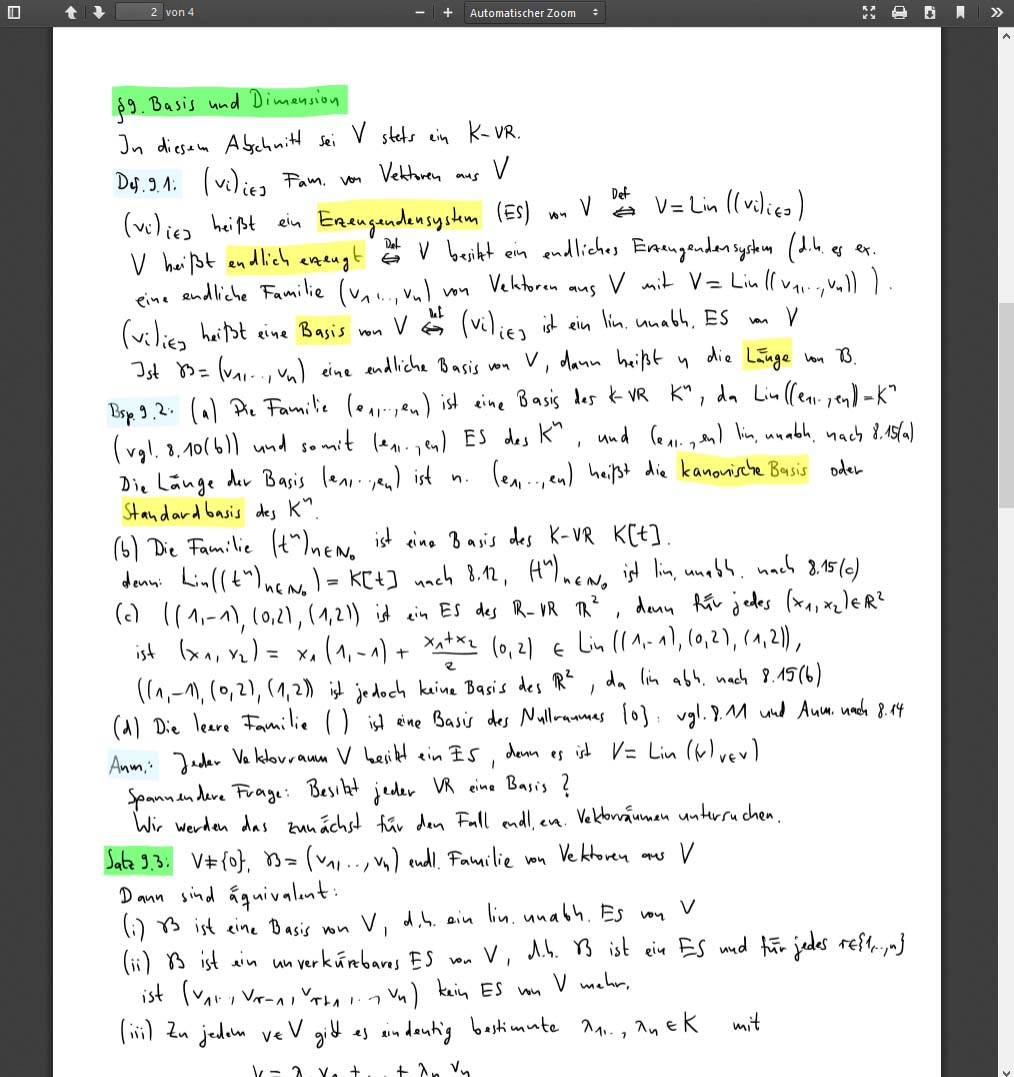 2 von 4
Automatischer Zoom
§9. Basis und Dimension
In diesem Abschnitt sei V stets ein K-VR.
Def. 9.1: (vi)i∈J Fam. von Vektoren aus V
(vi)i∈J heißt ein Erzeugendensystem (ES) von V Def ⇔ V = Lin ((vi)i∈J)
V heißt endlich erzeugt Def ⇔ V besitzt ein endliches Erzeugendensystem (d.h. es ex.
eine endliche Familie (v1,..,vn) von Vektoren aus V mit V = Lin((v1,..,vn)) ).
(vi)i∈J heißt eine Basis von V Def ⇔ (vi)i∈J ist ein lin. unabh. ES von V
Ist B = (v1,..,vn) eine endliche Basis von V, dann heißt n die Länge von B.
Bsp. 9.2: (a) Die Familie (e1,..,en) ist eine Basis des K-VR Kⁿ, da Lin((e1,..,en)) = Kⁿ
(vgl. 8.10(b)) und somit (e1,..,en) ES des Kⁿ, und (e1,..,en) lin. unabh. nach 8.15(a)
Die Länge der Basis (e1,..,en) ist n. (e1,..,en) heißt die kanonische Basis oder
Standardbasis des Kⁿ.
(b) Die Familie (tⁿ)n∈N₀ ist eine Basis des K-VR K[t].
denn: Lin((tⁿ)n∈N₀) = K[t] nach 8.12, (tⁿ)n∈N₀ ist lin. unabh. nach 8.15(c)
(c) ((1,-1), (0,2), (1,2)) ist ein ES des R-VR R², denn für jedes (x1,x2)∈R²
ist (x1, x2) = x1 (1,-1) + (x1+x2)/2 (0,2) ∈ Lin ((1,-1), (0,2), (1,2)),
((1,-1), (0,2), (1,2)) ist jedoch keine Basis des R², da lin abh. nach 8.15(b)
(d) Die leere Familie ( ) ist eine Basis des Nullraumes {0}: vgl. 8.11 und Anm. nach 8.14
Anm.: Jeder Vektorraum V besitzt ein ES, denn es ist V = Lin ((v)v∈V)
Spannendere Frage: Besitzt jeder VR eine Basis?
Wir werden das zunächst für den Fall endl. erz. Vektorräumen untersuchen.
Satz 9.3: V≠{0}, B = (v1,..,vn) endl. Familie von Vektoren aus V
Dann sind äquivalent:
(i) B ist eine Basis von V, d.h. ein lin. unabh. ES von V
(ii) B ist ein unverkürzbares ES von V, d.h. B ist ein ES und für jedes r∈{1,..,n}
ist (v1,.., vr-1, vr+1,.., vn) kein ES von V mehr.
(iii) Zu jedem v∈V gibt es eindeutig bestimmte λ1,.., λn ∈ K mit
v = λ1 v1 + ... + λn vn